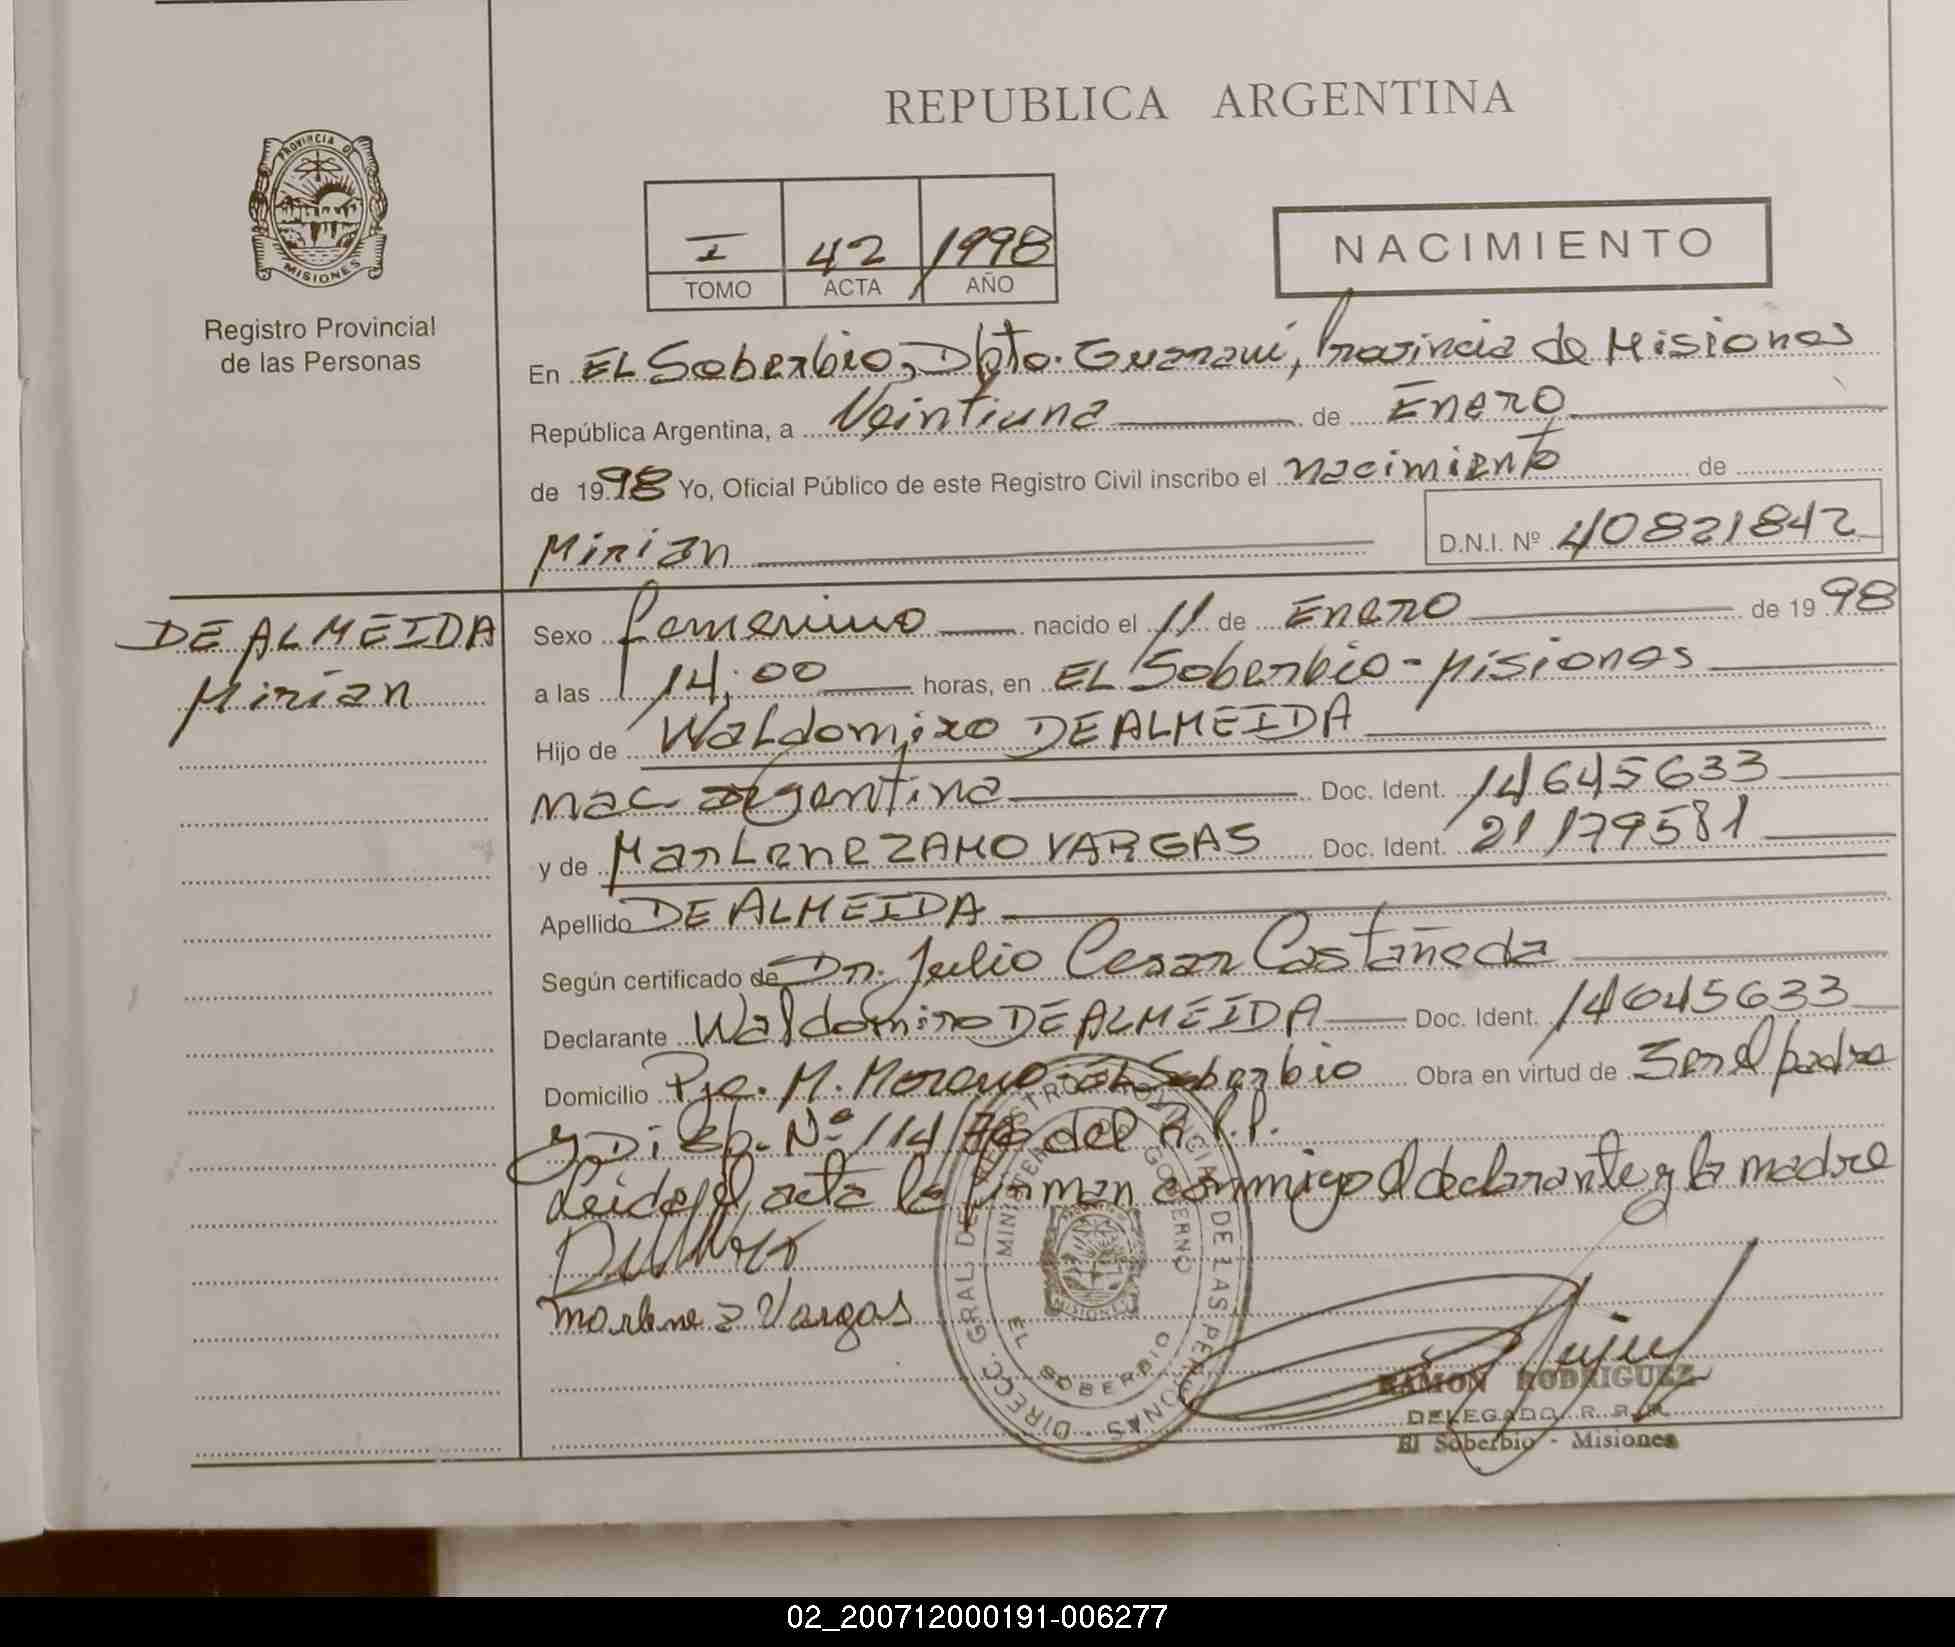 REPUBLICA ARGENTINA
PROVINCIA DE
MISIONES
Registro Provincial
de las Personas
I 42 1998
TOMO ACTA AÑO
NACIMIENTO
En EL Soberbio, Dpto. Guarani, Provincia de Misiones
República Argentina, a Veintiuna de Enero
de 1998 Yo, Oficial Público de este Registro Civil inscribo el nacimiento de
Mirian D.N.I. Nº 40821842
DE ALMEIDA
Mirian
Sexo femenino nacido el 11 de Enero de 1998
a las 14;00 horas, en EL Soberbio - Misiones
Hijo de Waldomiro DE ALMEIDA
nac argentina Doc. Ident. 14645633
y de Marlene ZAMO VARGAS Doc. Ident. 21179581
Apellido DE ALMEIDA
Según certificado de Dr. Julio Cesar Castañeda
Declarante Waldomiro DE ALMEIDA Doc. Ident. 14645633
Domicilio Pje. M. Moreno - EL Soberbio Obra en virtud de Ser el padre
y Disp. Nº 114/ del R.P.P.
Leida el acta la firman conmigo el declarante y la madre
Marlene Z Vargas
DIRECC. GRAL. DEL REGISTRO PROVINCIAL DE LAS PERSONAS
MINISTERIO GOBIERNO
MISIONES
EL SOBERBIO
RAMON RODRIGUEZ
DELEGADO R. P. P.
El Soberbio - Misiones
02_200712000191-006277